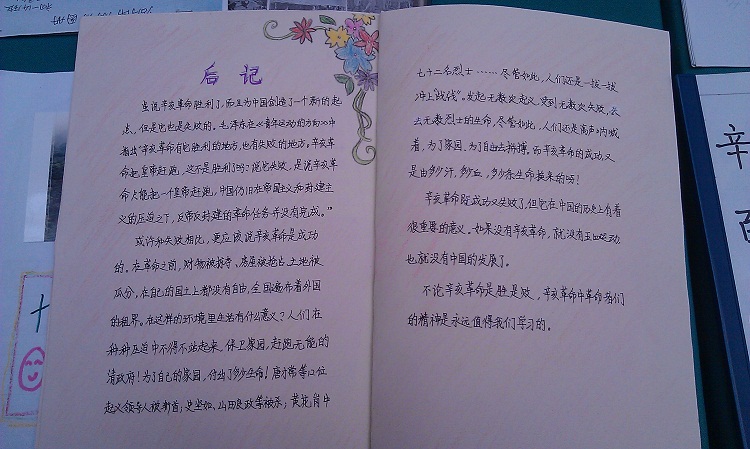 后记
虽说辛亥革命胜利了，而且为中国创造了一个新的起
点，但是它也是失败的。毛泽东在《青年运动的方向》中
指出“辛亥革命有它胜利的地方，也有失败的地方，辛亥革
命把皇帝赶跑，这不是胜利了吗？说它失败，是说辛亥革
命只能把一个皇帝赶跑，中国仍旧在帝国主义和封建主
义的压迫之下，反帝反封建的革命任务并没有完成。”
或许和失败相比，更应该说辛亥革命是成功
的。在革命之前，财物被掠夺、房屋被抢占、土地被
瓜分，在自己的国土上都没有自由，全国遍布着外国
的租界。在这样的环境里生活有什么意义？人们在
种种压迫中不得不站起来，保卫家园，赶跑无能的
清政府！为了自己的家园，付出了多少生命！唐才常等
起义领导人被斩首；史坚如、山田良政等被杀；黄花岗
七十二名烈士……尽管如此，人们还是一拨一拨
冲上“战线”。发起无数次起义，受到无数次失败，失
去无数烈士的生命，尽管如此，人们还是高声呐喊
着，为了家园，为了自由去拼搏。而辛亥革命的成功又
是由多少汗，多少血，多少条生命换来的呀！
辛亥革命既成功又失败了，但它在中国的历史上有着
很重要的意义。如果没有辛亥革命，就没有五四运动，
也就没有中国的发展了。
不论辛亥革命是胜是败，辛亥革命中革命者们
的精神是永远值得我们学习的。
辛
百
十